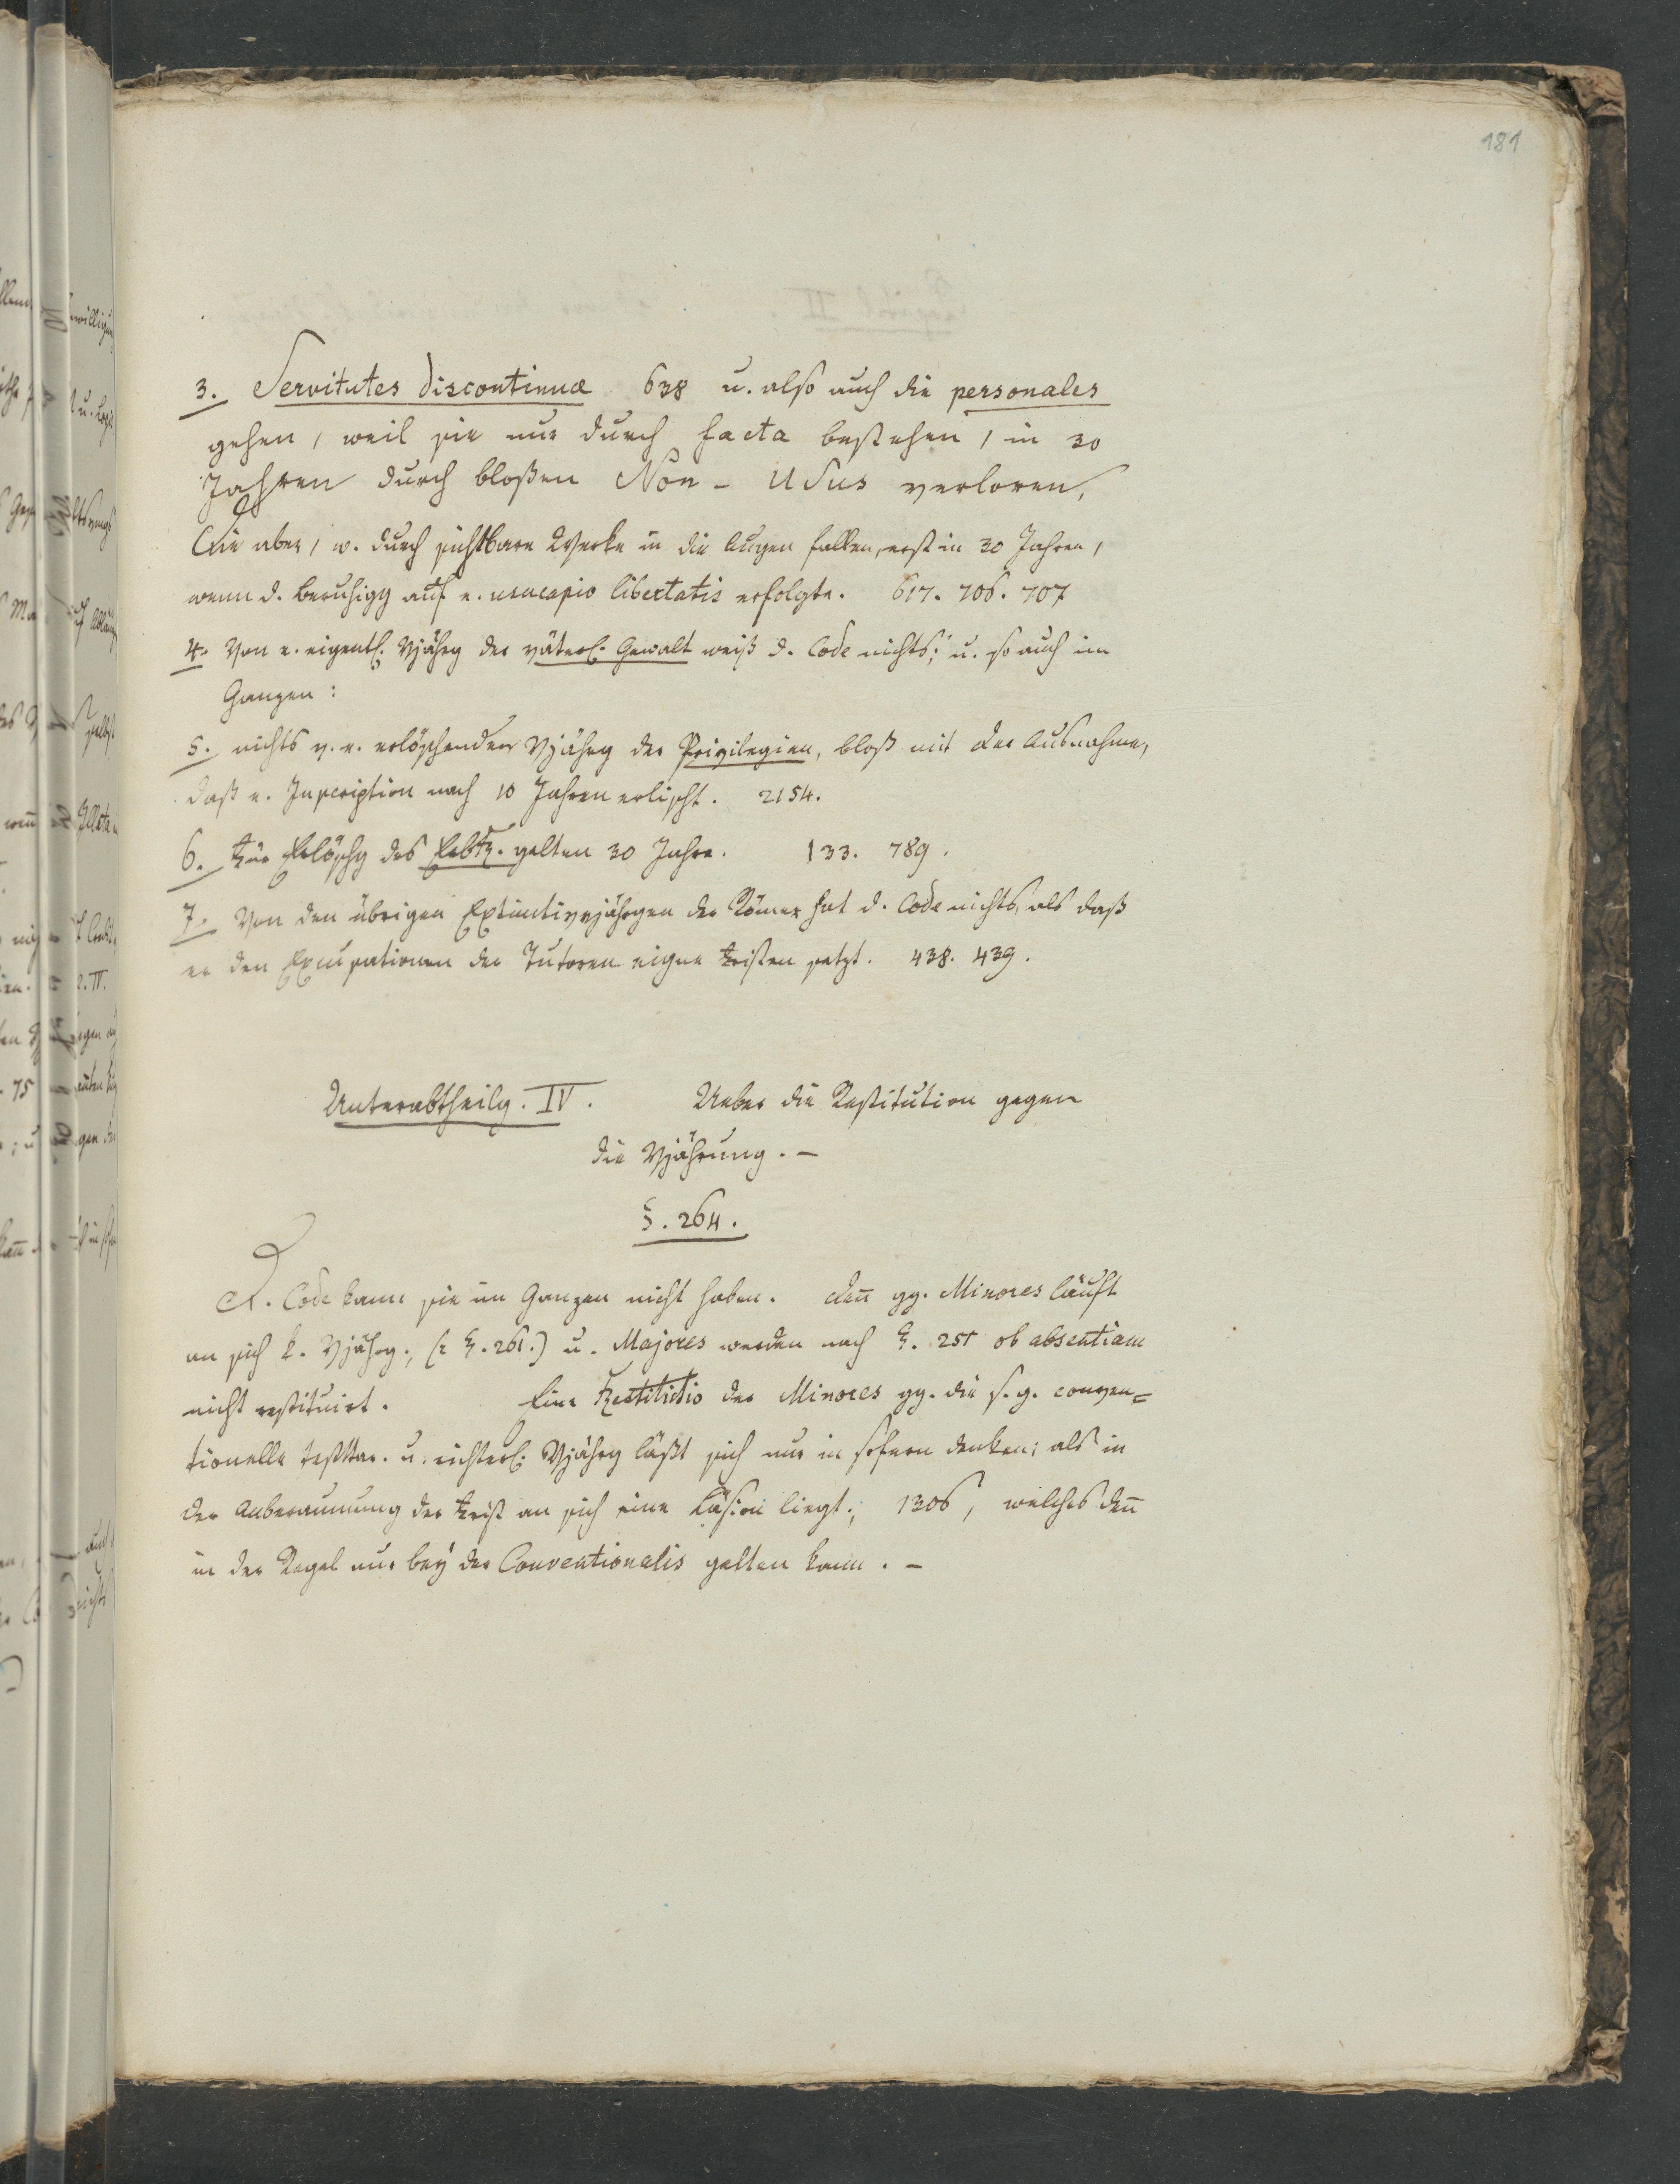 181
3. Servitutes discontinuæ 638 u. also auch die personales
gehen, weil sie nur durch facta bestehen, in 30
Jahren durch bloßen Non-Usus verloren,
Die aber, w. durch sichtbare Werke in die Augen fallen, erst in 30 Jahren,
wenn d. Beruhigg auf e. usucapio libertatis erfolgte. 617. 706. 707
4. Von e. eigentl. Vjährg der väterl. Gewalt weiß d. Code nichts; u. so auch im
Ganzen:
5. nichts v. e. erlöschenden Vjährg der Privilegien, bloß mit der Ausnahme,
daß e. Inscription nach 10 Jahren erlischt. 2154.
6. Zur Erlöschg des gelten 30 Jahre. 133. 789.
7. Von den übrigen Extinctivvjährgen der Römer hat d. Code nichts, als daß
er den Excusationen der Tutoren eigne Fristen setzt. 438. 439.
Unterabtheilg. IV. Ueber die Restitution gegen
die Vjährung. –
§. 264.
D. Code kann sie im Ganzen nicht haben. Den̄ gg. Minores läuft
an sich k. Vjährg., (§. 261.) u. Majores werden nach §. 251 ob absentiam
nicht restituirt. Eine Restitutio der Minores gg. die s. g. conven=
tionelle u. richterl. Vjährg läßt sich nur in sofern denken; als in
der Anberaumung der Frist an sich eine Läsion liegt; 1305, welches den̄
in der Regel nur bey der Conventionalis gelten kann. –